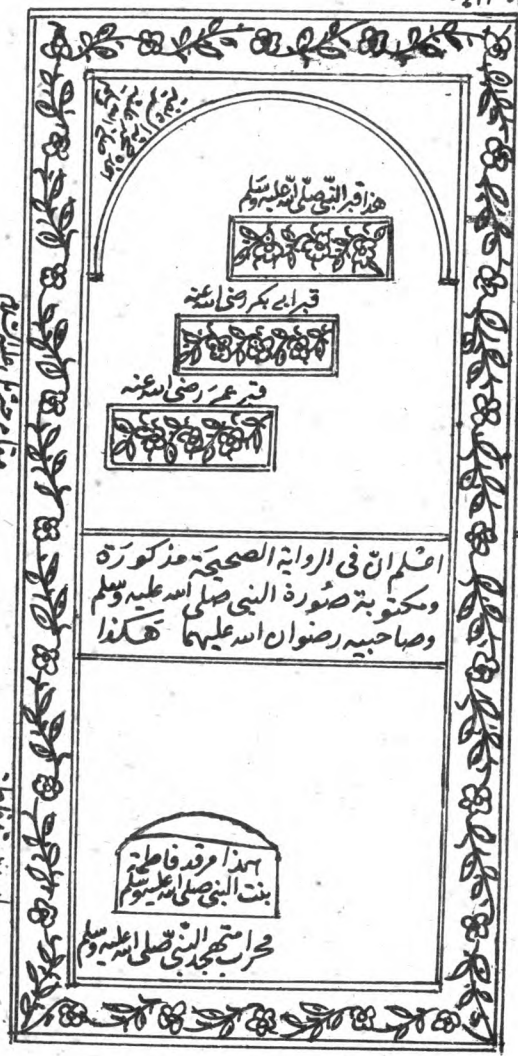 هذا قبر النبي صلى الله عليه وسلم
قبر ابى بكر رضى الله عنه
قبر عمر رضى الله عنه
اعلم انّ فى الرواية الصحيحة مذكورة
ومكتوبة صورة النبى صلى الله عليه وسلم
وصاحبيه رضوان الله عليهما هكذا
هذا مرقد فاطمة
بنت النبى صلى الله عليه وسلم
محراب تهجد النبى صلى الله عليه وسلم